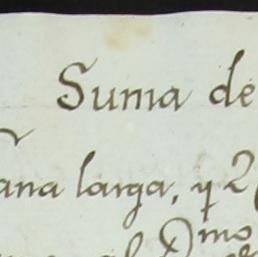 Suma de
ana larga, y 2
mo